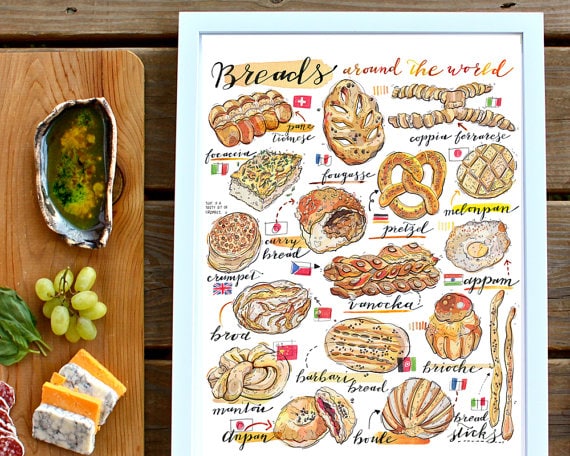 Breads around the world
pane
ticinese
coppia ferrarese
focaccia
fougasse
melonpan
pretzel
curry
bread
crumpet
appam
vanocka
broa
brioche
barbari
bread
mantou
bread
sticks
anpan
boule